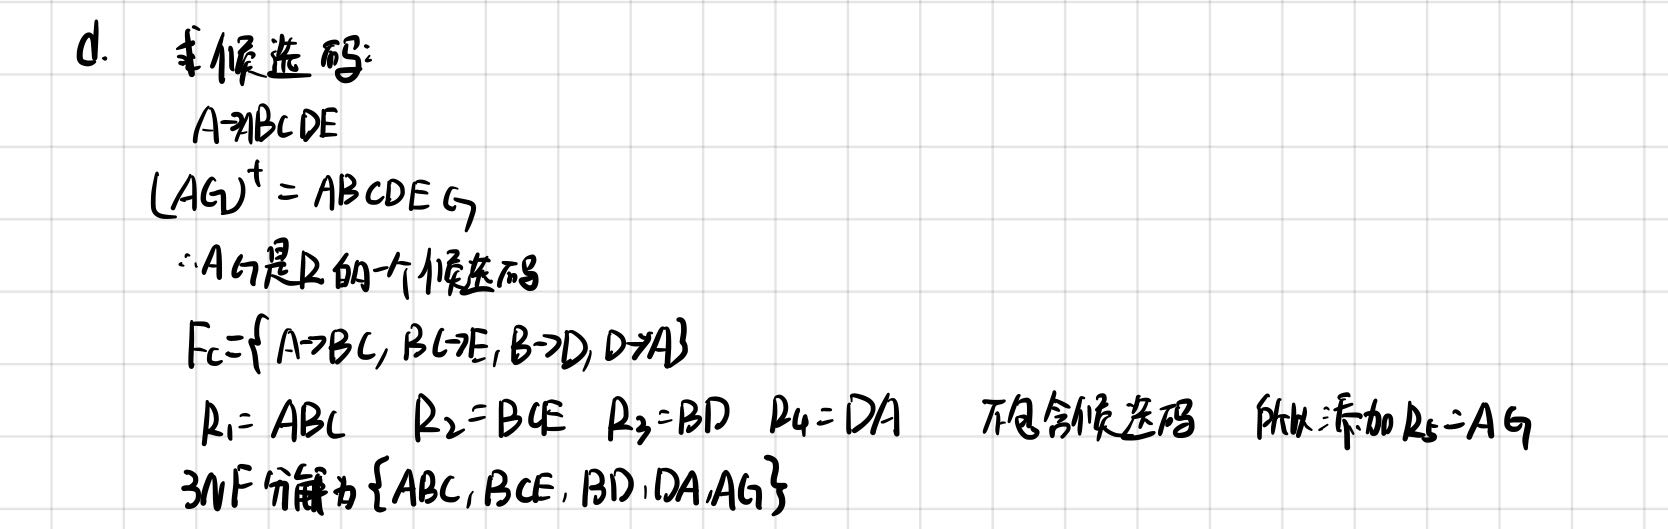 d. 求候选码:
A→ABCDE
(AG)⁺ = ABCDEG
∴AG是R的一个候选码
Fc={A→BC, BC→E, B→D, D→A}
R₁= ABC R₂=BCE R₃=BD R₄=DA 不包含候选码 所以添加R₅=AG
3NF分解为{ABC, BCE, BD, DA, AG}